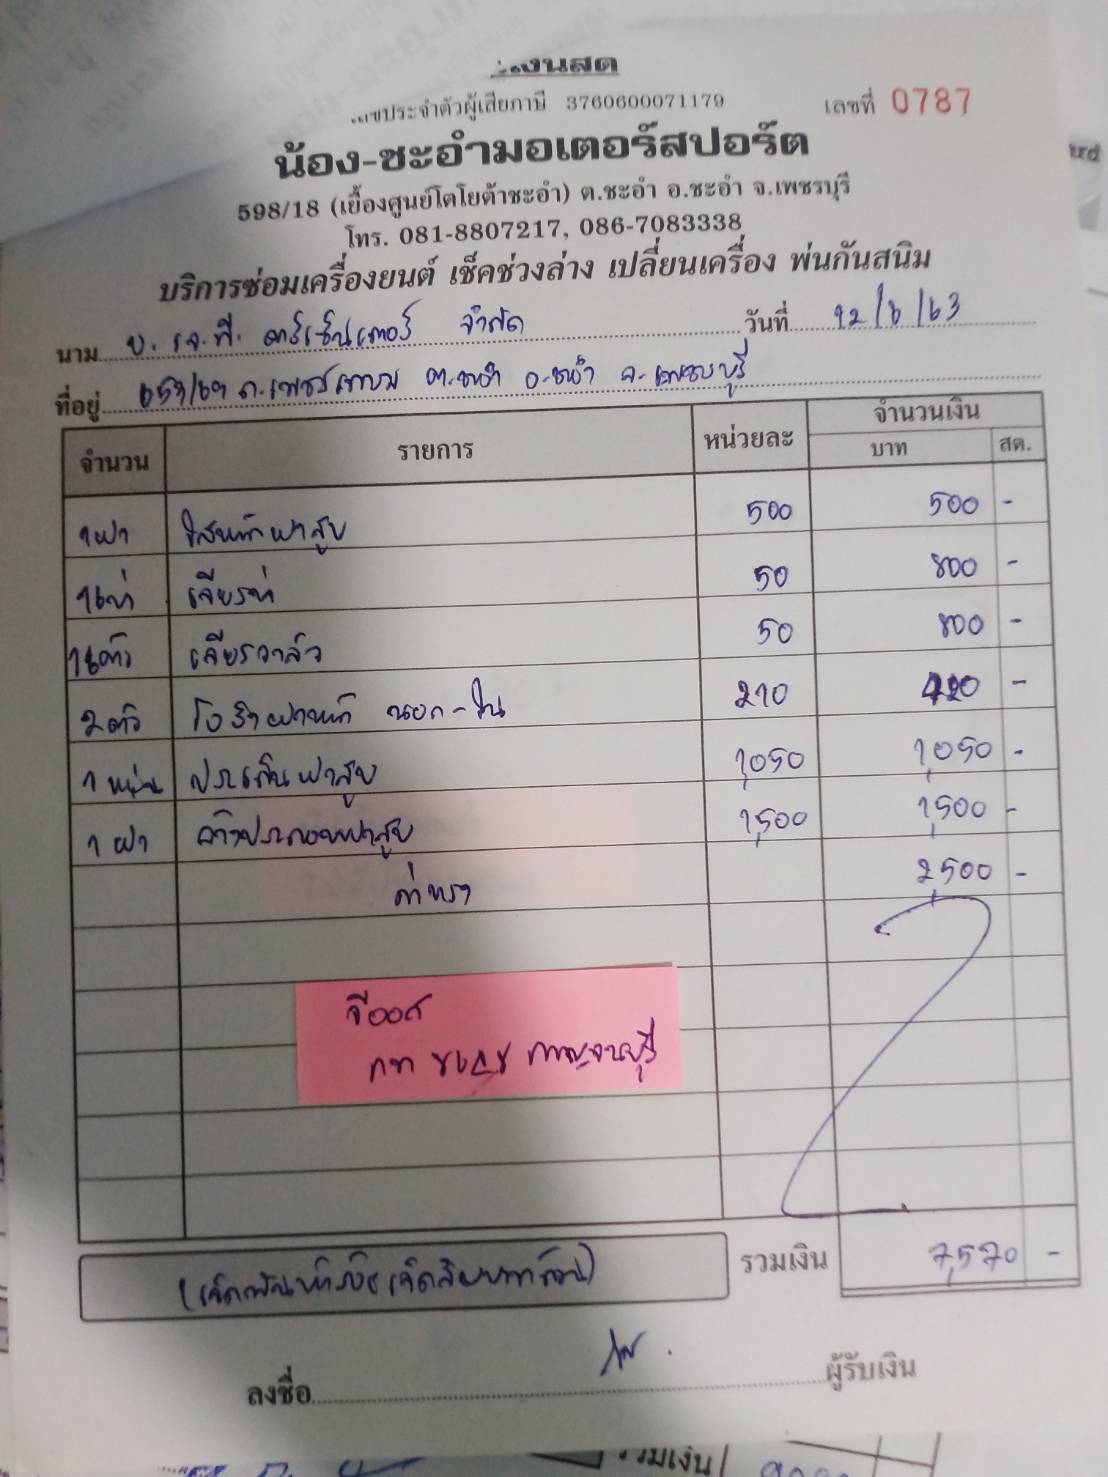 เงินสด
ประจำตัวผู้เสียภาษี 3760600071179 เลขที่ 0787
น้อง-ชะอำมอเตอร์สปอร์ต
598/18 (เยื้องศูนย์โตโยต้าชะอำ) ต.ชะอำ อ.ชะอำ จ.เพชรบุรี
โทร. 081-8807217, 086-7083338
บริการซ่อมเครื่องยนต์ เช็คช่วงล่าง เปลี่ยนเครื่อง พ่นกันสนิม
นาม บ. เจ.พี. คาร์เซ็นเตอร์ จำกัด วันที่ 12/6/63
ที่อยู่ ถ.เพชรเกษม ต.ชะอำ อ.ชะอำ จ.เพชรบุรี
จำนวน รายการ หน่วยละ จำนวนเงิน
บาท สต.
1 ฝา ไสหน้าฝาสูบ 500 500 -
50 800 -
50 800 -
2 ตัว 210 420 -
1 แผ่น ประเก็นฝาสูบ 1,050 1,050 -
1 ฝา ล้างประกอบฝาสูบ 1,500 1,500 -
ค่าแรง 2,500 -
วีออส
กาญจนบุรี
(เจ็ดพันห้าร้อยเจ็ดสิบบาทถ้วน) รวมเงิน 7,570 -
ลงชื่อ ผู้รับเงิน
รวมเงิน